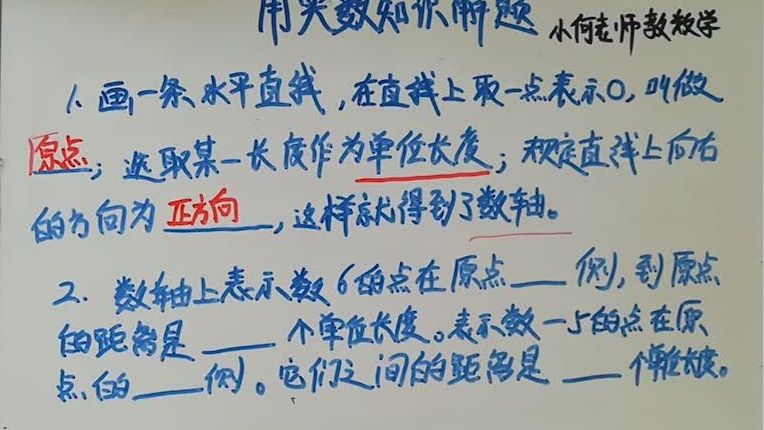 用实数知识解题 小何老师教数学
1. 画一条水平直线,在直线上取一点表示0,叫做
原点;选取某一长度作为单位长度;规定直线上向右
的方向为正方向,这样就得到了数轴。
2. 数轴上表示数6的点在原点___侧,到原点
的距离是___个单位长度。表示数-5的点在原
点的___侧。它们之间的距离是___个单位长度。